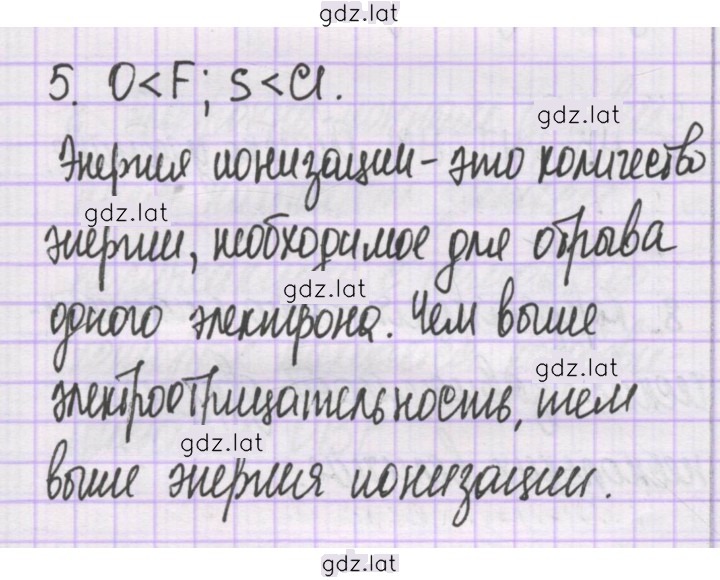 gdz.lat
5. O<F; S<Cl.
gdz.lat
Энергия ионизации - это количество
gdz.lat
энергии, необходимое для отрыва
gdz.lat
одного электрона. Чем выше
gdz.lat
электроотрицательность, тем
gdz.lat
выше энергия ионизации.
gdz.lat